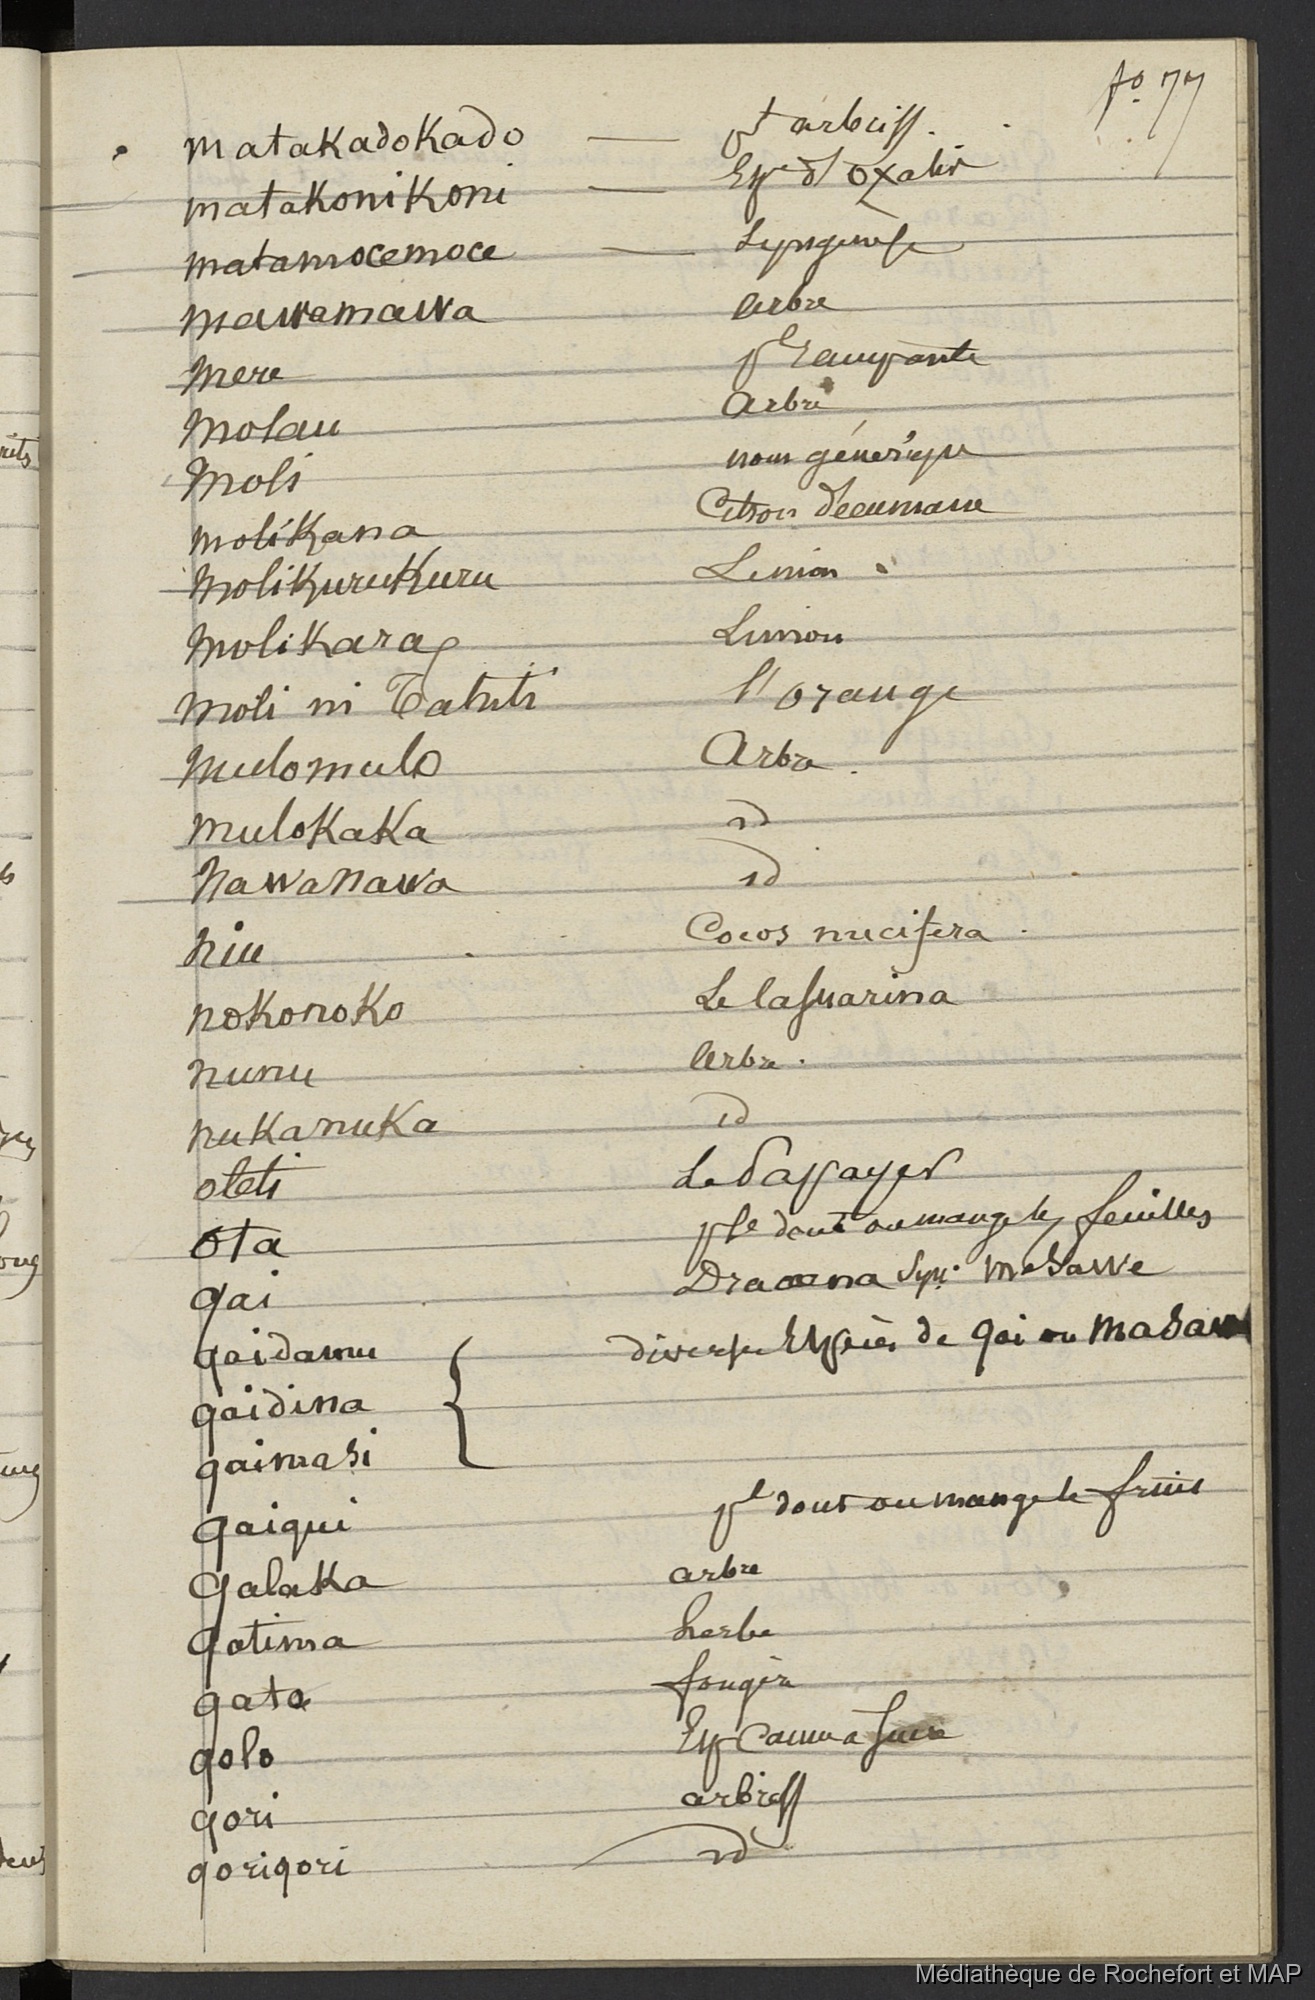 fo. 77
matakadokado — pt arbriss.
matakonikoni — Espe d'oxalis
matamocemoce — Legugineuse
mawamawa arbre
mere pl rampante
molau arbre
moli nom générique
molikana Citron Décumane
molikurukuru Limon
molikara Limon
moli ni Tahiti l'orange
mulomulo Arbre
mulokaka id
nawanawa id
niu Cocos nucifera
nokonoko Le Casuarina
nunu arbre
nukanuka id
oleti Le Papayer
ota ple dont on mange les feuilles
qai Dracaena Syn. masawe
qaidamu diverses Espèces de qai ou masawe
qaidina
qaimasi
qaiqui pl dont on mange le fruit
qalaka arbre
qatima herbe
qato fougère
qolo Esp Canna
qori arbriss
qoriqori id
Médiathèque de Rochefort et MAP